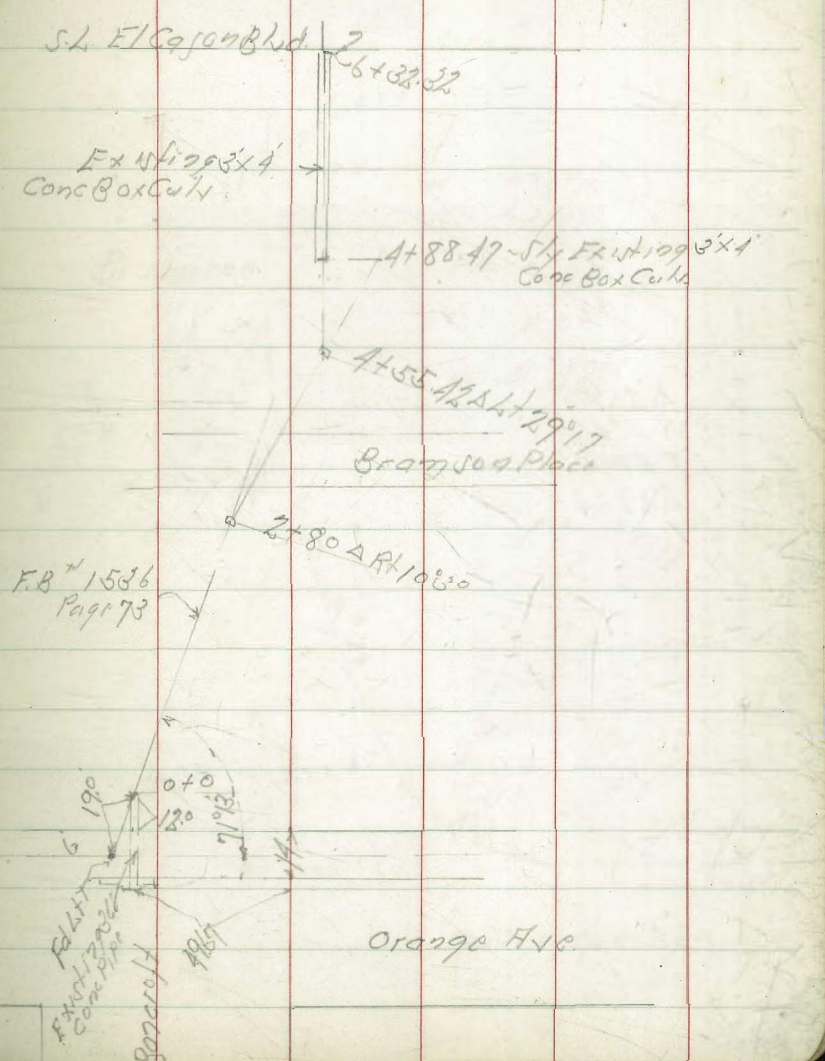 S.L El Cajon Blvd.
6+32.32
Existing 3'x4'
Conc Box Culv.
4+88.47 - Sly Existing 3'x4'
Conc Box Culv.
4+55.42 Δ Lt 29°17
Bramson Place
2+80 Δ Rt 10°30
F.B # 1536
Page 73
0+0
19.0'
12.0
71°13'
14'
6'
Fd L+T
Existing 36"
Conc Pipe
Bancroft
Orange Ave.